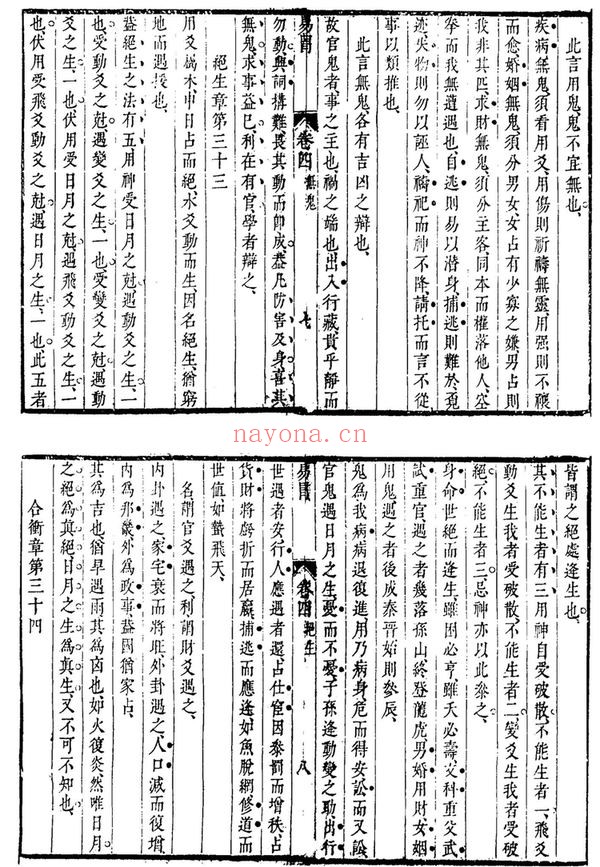 此言用鬼鬼不宜無也
疾病無鬼須看用爻用傷則祈禱無靈用强則不禳
而愈婚姻無鬼須分男女女占有少寡之嫌男占則
我非其匹求財無鬼須分主客同本而權落他人空
拳而我無遺遇也自逃則易以潜身捕逃則難於覔
迹失物則勿以誣人禱祀而神不降請托而言不從
事以類推也
此言無鬼各有吉凶之辯也
故官鬼者事之主也禍之端也出入行藏貴乎靜而
易冐 卷四 無鬼 七
勿動興詞搆難畏其動而卽成葢凡防害及身喜其
無鬼求事益已利在有官學者辯之
絕生章第三十三
用爻屬木申日占而絕水爻動而生因名絕生猶窮
地而遇援也
葢絕生之法有五用神受日月之尅遇動爻之生一
也受動爻之尅遇變爻之生一也受變爻之尅遇動
爻之生一也伏用受日月之尅遇飛爻動爻之生一
也伏用受飛爻動爻之尅遇日月之生一也此五者
皆謂之絕處逢生也
其不能生者有三用神自受破散不能生者一飛爻
動爻生我者受破散不能生者二變爻生我者受破
絕不能生者三忌神亦以此參之
身命世絕而逢生雖困必亨雖夭必壽文科重父武
試重官遇之者幾落孫山終登龍虎男婚用財女姻
用鬼遇之者後成秦晉始則參辰
鬼爲我病病退復進用乃病身危而得安訟而又訟
官鬼遇日月之生憂而不憂子孫逢動變之助出行
易冐 卷四 絕生 八
世遇者安行人應遇者還占仕宦因參罰而增秩占
貨財將虧折而居贏捕逃而應逢如魚脫網修道而
世値如蟄飛天
名謂官爻遇之利謂財爻遇之
內卦遇之家宅衰而將旺外卦遇之人口减而復增
內爲邦畿外爲政事葢國猶家占
其爲吉也猶旱遇雨其爲凶也如火復炎然唯日月
之絕爲真絕日月之生爲真生又不可不知也
合衝章第三十四
nayona.cn